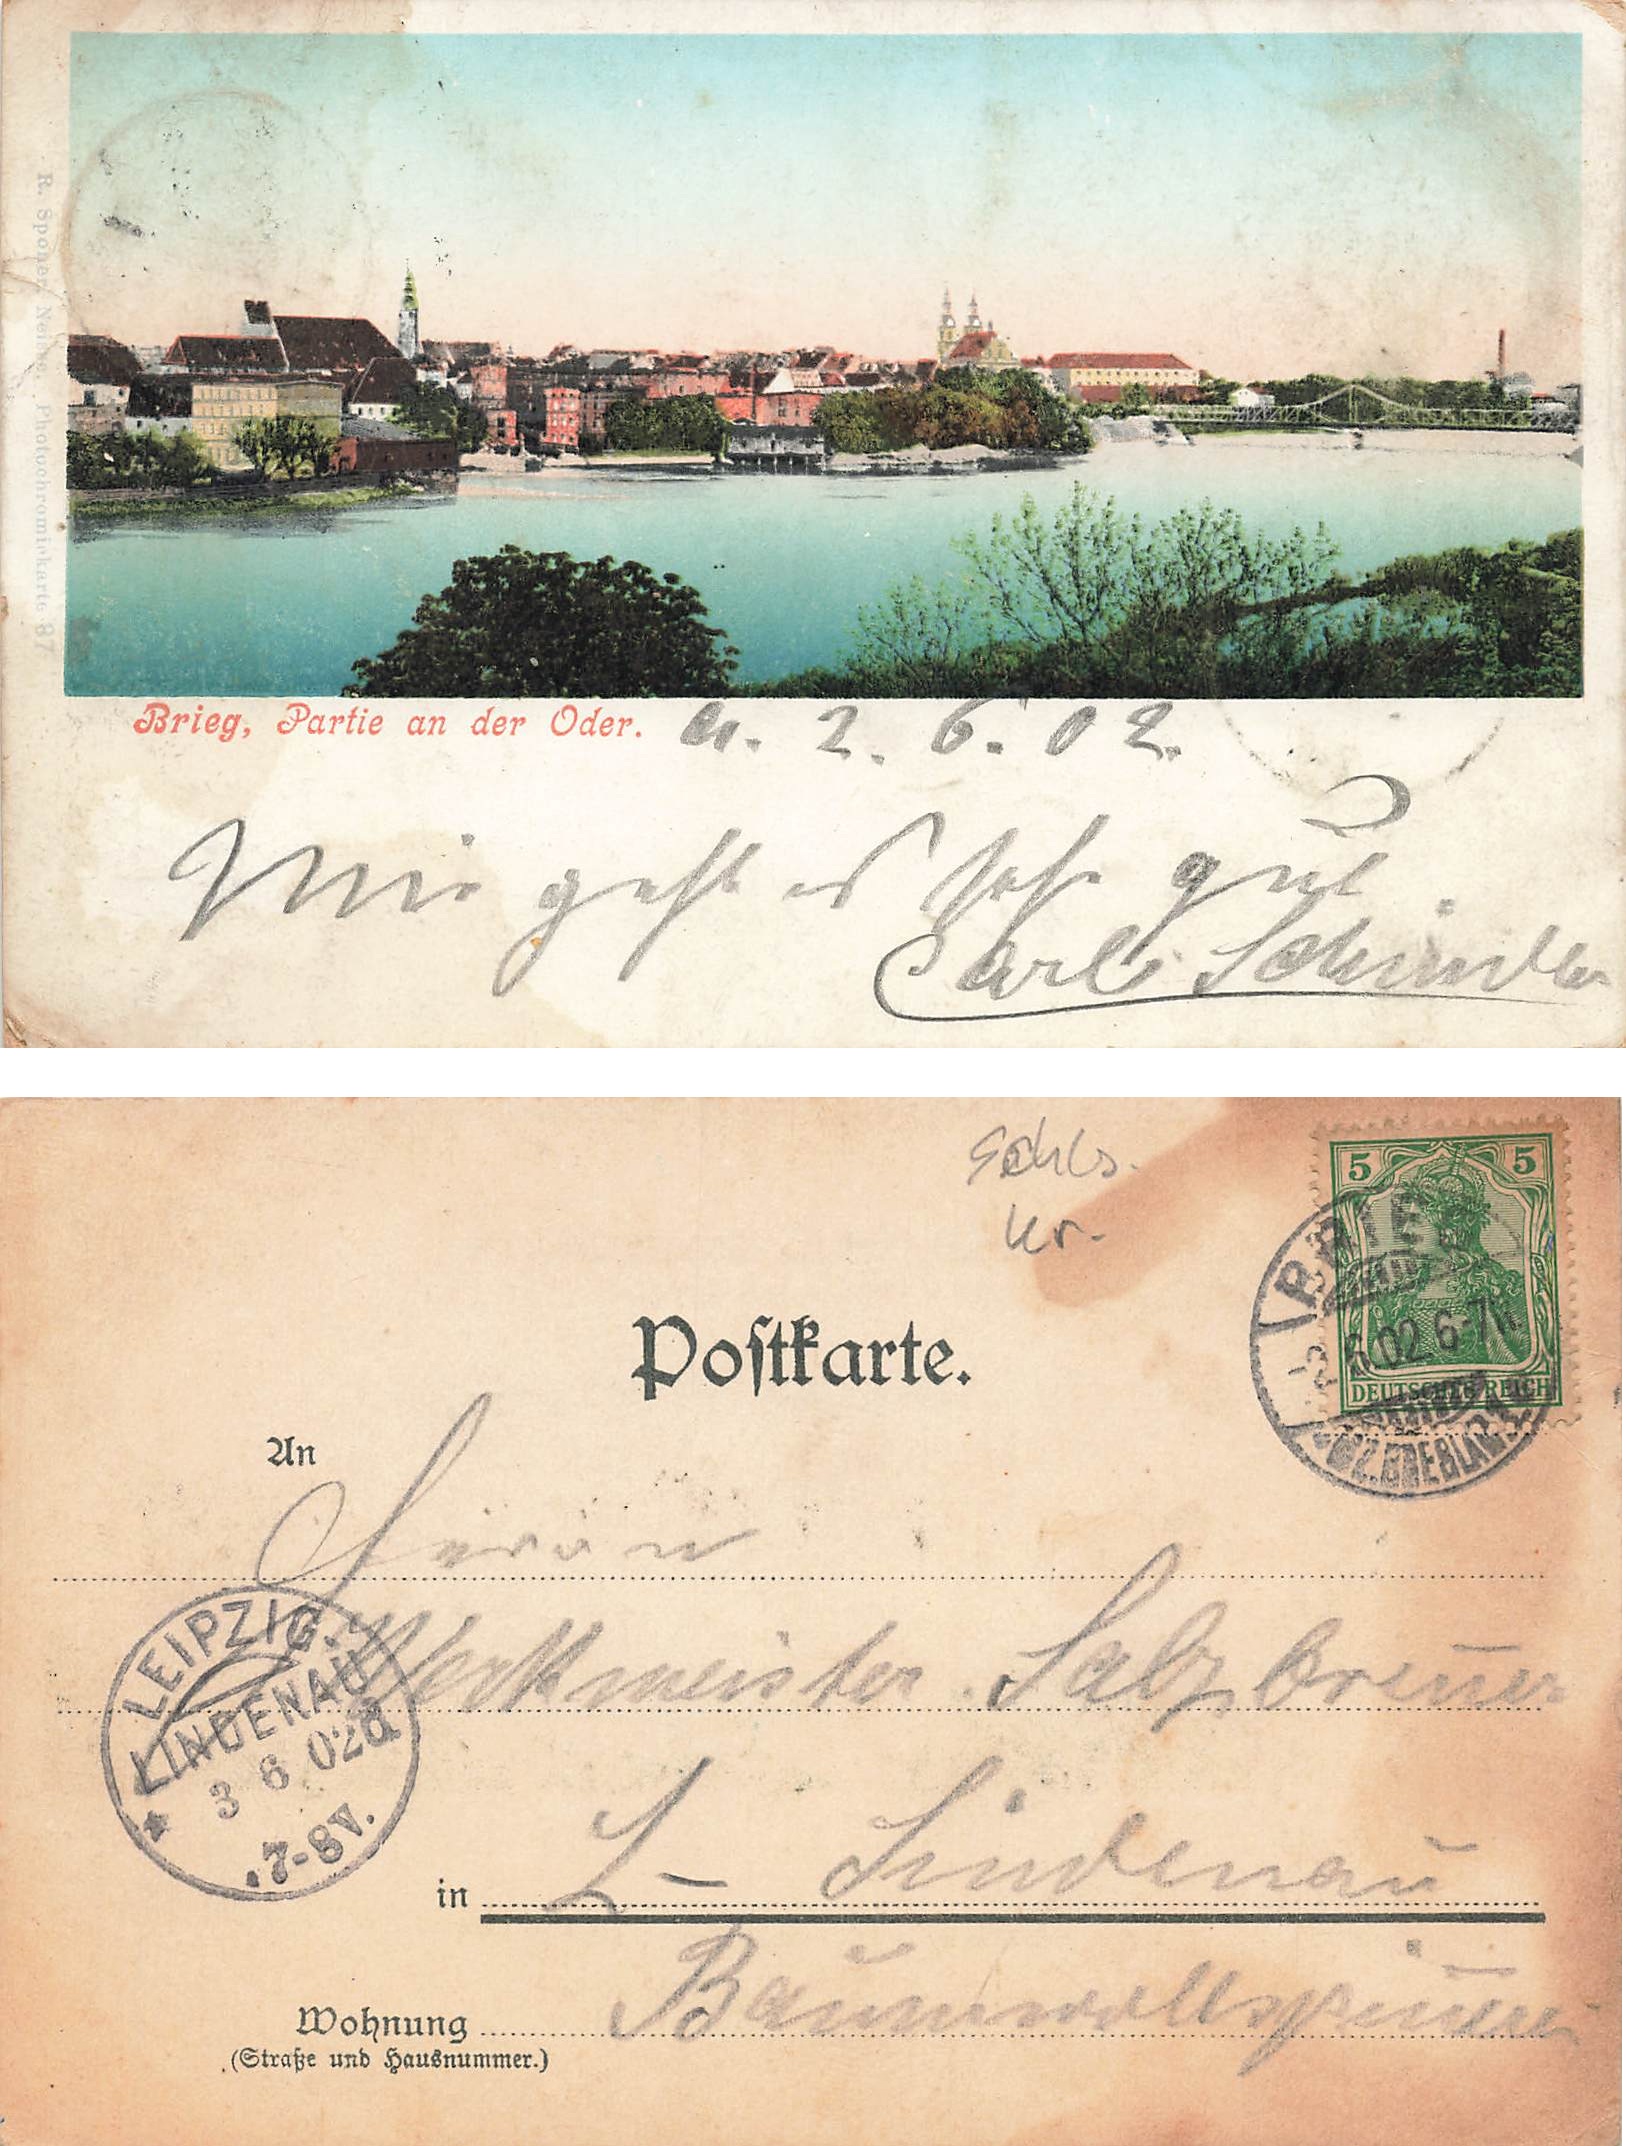 R. Sponer, Neisse, Photochromiekarte 87
Brieg, Partie an der Oder.
a. 2. 6. 02.
Mir geht es sehr gut
Carl Schindler
Schls.
Kr.
5 5
DEUTSCHES REICH
BRIEG
2 6 02 6-7N.
BZ. BRESLAU
Postkarte.
An
Herrn
Werkmeister Salzbrenner
LEIPZIG-
LINDENAU
3 6 02
7-8V.
in L- Lindenau
Baumwollspinnerei
Wohnung
(Straße und Hausnummer.)